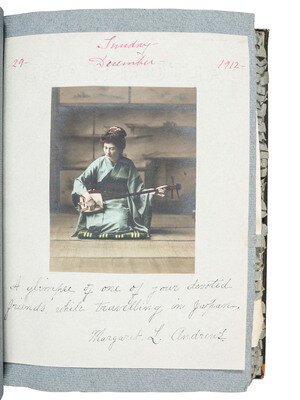 Sunday
29- December 1912-
A glimpse of one of your devoted
friends while travelling in Japan.
Margaret L. Andrews